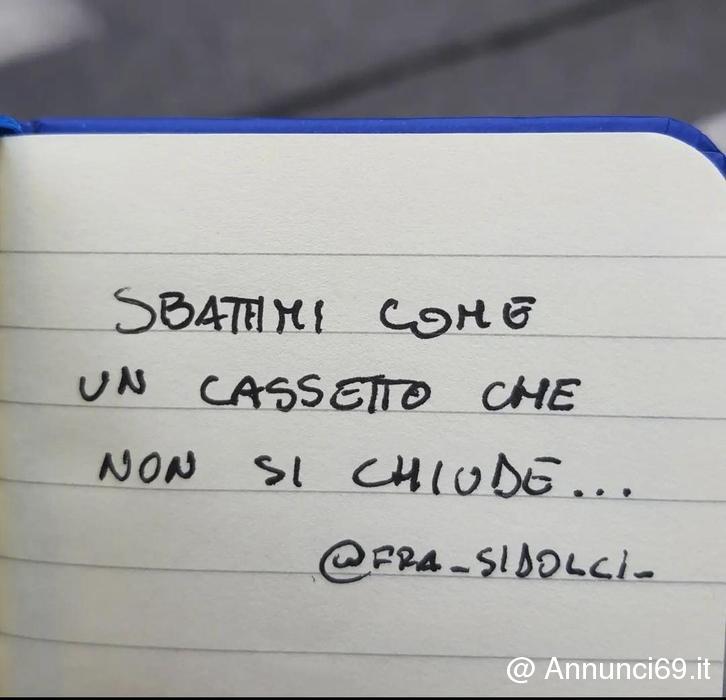 SBATTIMI COME
UN CASSETTO CHE
NON SI CHIUDE...
@FRA_SIDOLCI_
@ Annunci69.it